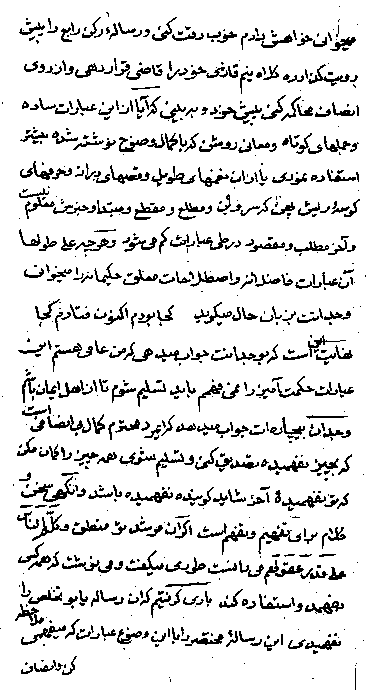 همچنان خواهش دارم خوب دقت کنی و رساله رکن رابع را پیش
رویت بگذار و کلاه بنم قاضی خود را قاضی قرار دهی و از روی
انصاف محاکمه کنی پیش خود و ببینی که آیا از این عبارات ساده
و جملهای کوتاه و معانی روشن که با کمال وضوح نوشته شده بیشتر
استفاده نمودی یا از آن سخنهای طویل و قصه‌های ویرانه و حرفهای
کوسه و ریش پهن که سر و بن و مطلع و مقطع و مبتدا و خبرش معلوم نیست
و آخر مطلب و مقصود در طی عبارات گم می‌شود و هرچه علی طولها
آن عبارات فاضلانه و اصطلاحات مغلق حکیمانه را میخوانی
وجدانت بزبان حال میگوید کجا بودم اکنون فتادم کجا
نهایت این است که بوجدانت جواب میدهی که من عامی هستم این
عبارات حکمت آمیز را نمی‌فهمم باید تسلیم شوم تا از اهل ایمان باشم
وجدان بیچاره‌ات جواب میدهد که برادر محترم کمال بی‌انصافی است
که بچیز نفهمیده تصدیق کنی و تسلیم شوی همه چیز را گمان مکن
که تو نفهمیدهٔ آخر شاید گوینده نفهمیده باشد وانگهی سخن و
کلام برای تفهیم و تفهم است اگر آن مرشد تو منطق و کلم الناس
علی قدر عقولهم می‌دانست طوری میگفت و می‌نوشت که همه کس
بفهمد و استفاده کند باری گرفتیم که آن رساله یا بو تخلص را
نفهمیدی این رساله مختصر را با این وضوح عبارات که میفهمی ملاحظه
کن و انصاف